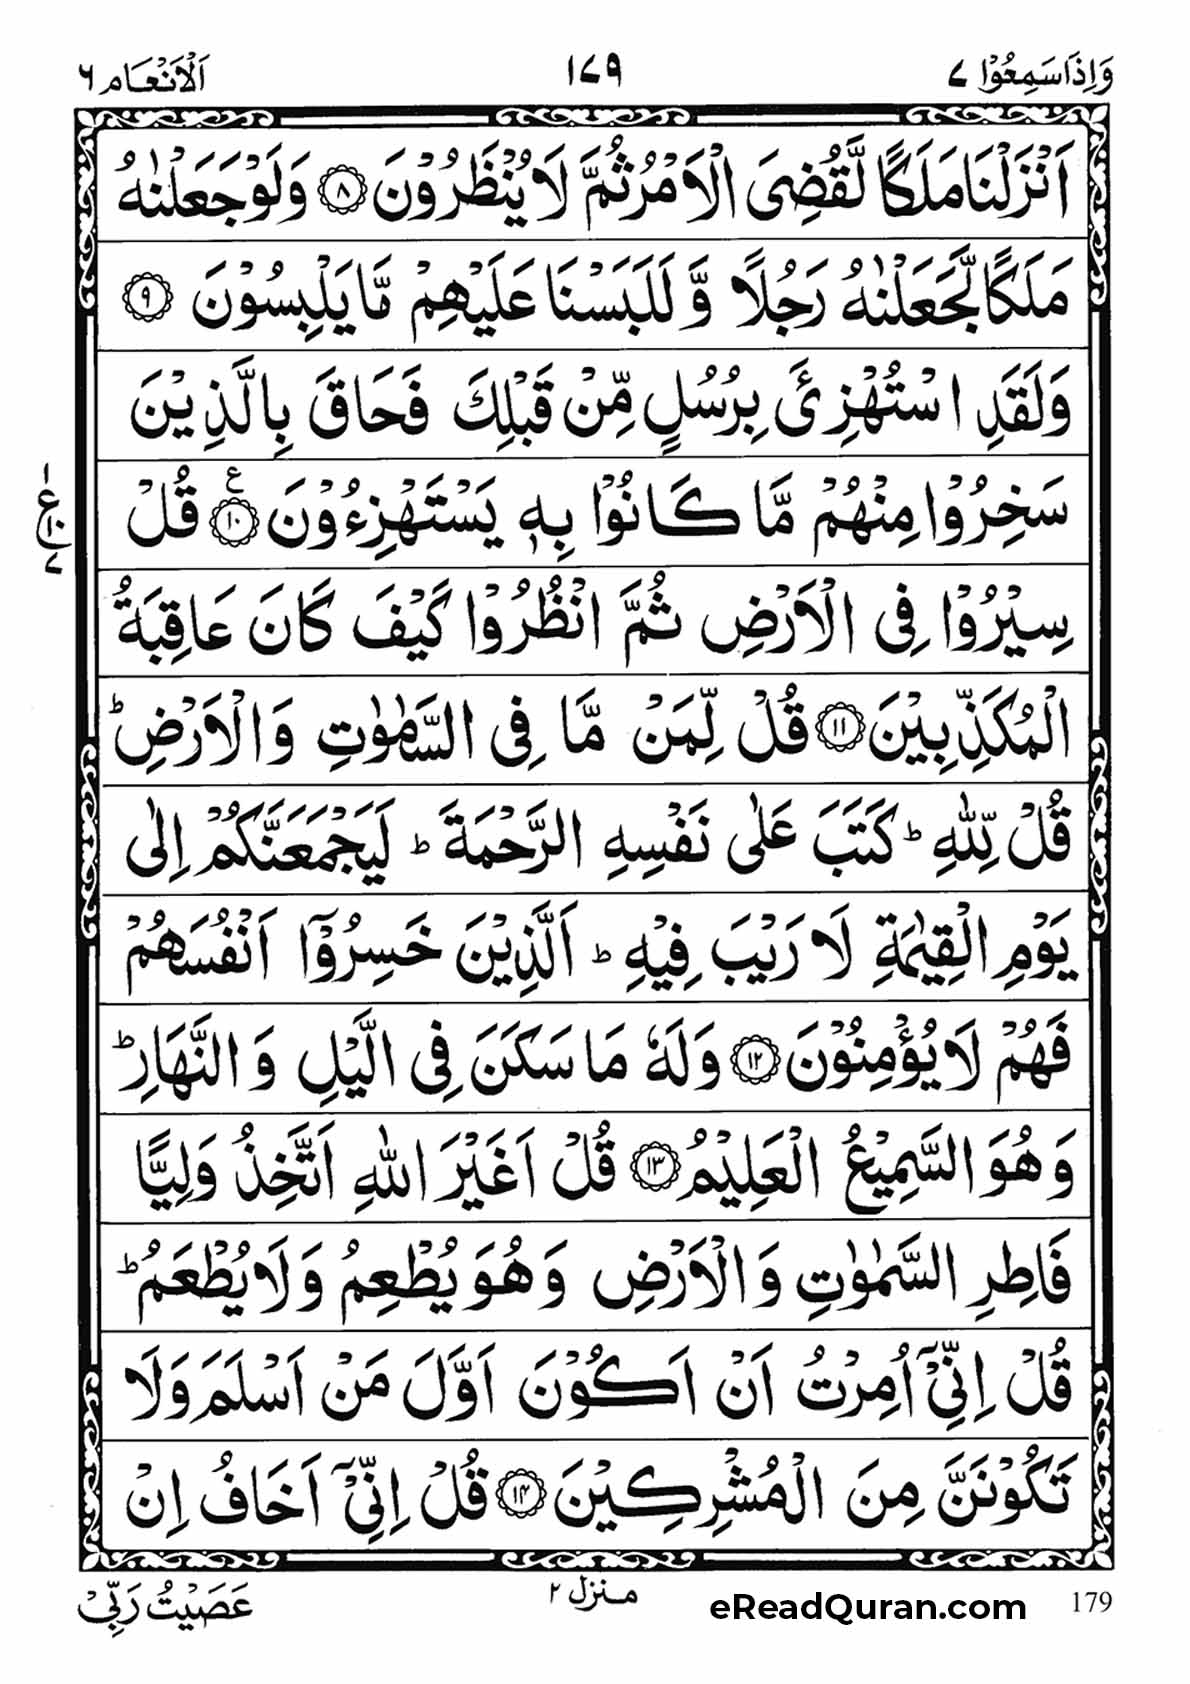 وَاِذَا سَمِعُوْا ٧
١٧٩
اَلْاَنْعَام ٦
اَنْزَلْنَا مَلَكًا لَّقُضِیَ الْاَمْرُ ثُمَّ لَا یُنْظَرُوْنَ ﴿٨﴾ وَلَوْ جَعَلْنٰهُ
مَلَكًا لَّجَعَلْنٰهُ رَجُلًا وَّ لَلَبَسْنَا عَلَیْهِمْ مَّا یَلْبِسُوْنَ ﴿٩﴾
وَلَقَدِ اسْتُهْزِئَ بِرُسُلٍ مِّنْ قَبْلِكَ فَحَاقَ بِالَّذِیْنَ
سَخِرُوْا مِنْهُمْ مَّا كَانُوْا بِهٖ یَسْتَهْزِءُوْنَ ﴿١٠﴾ ع قُلْ
١
ع
١٠
٧
سِیْرُوْا فِی الْاَرْضِ ثُمَّ انْظُرُوْا كَیْفَ كَانَ عَاقِبَةُ
الْمُكَذِّبِیْنَ ﴿١١﴾ قُلْ لِّمَنْ مَّا فِی السَّمٰوٰتِ وَالْاَرْضِ ؕ
قُلْ لِّلّٰهِ ؕ كَتَبَ عَلٰی نَفْسِهِ الرَّحْمَةَ ؕ لَیَجْمَعَنَّكُمْ اِلٰی
یَوْمِ الْقِیٰمَةِ لَا رَیْبَ فِیْهِ ؕ اَلَّذِیْنَ خَسِرُوْۤا اَنْفُسَهُمْ
فَهُمْ لَا یُؤْمِنُوْنَ ﴿١٢﴾ وَلَهٗ مَا سَكَنَ فِی الَّیْلِ وَ النَّهَارِ ؕ
وَهُوَ السَّمِیْعُ الْعَلِیْمُ ﴿١٣﴾ قُلْ اَغَیْرَ اللّٰهِ اَتَّخِذُ وَلِیًّا
فَاطِرِ السَّمٰوٰتِ وَالْاَرْضِ وَهُوَ یُطْعِمُ وَلَا یُطْعَمُ ؕ
قُلْ اِنِّیْۤ اُمِرْتُ اَنْ اَكُوْنَ اَوَّلَ مَنْ اَسْلَمَ وَلَا
تَكُوْنَنَّ مِنَ الْمُشْرِكِیْنَ ﴿١٤﴾ قُلْ اِنِّیْۤ اَخَافُ اِنْ
179
eReadQuran.com
منزل ٢
عَصَیْتُ رَبِّیْ